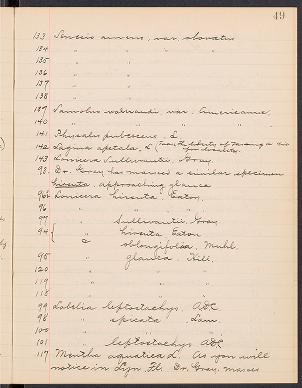 49
133 Senecio aureus, var. obovatus
134 " " " "
135 " "
136 " "
137 " "
138 " "
139 Samolus valerandi, var. Americanus,
140 " " " "
141 Physalis pubescens, L
142 L
143 Lonicera Sullivantii, Gray.
93. Dr. Gray has marked a similar specimen
hirsuta, approaching glauca
96 Lonicera hirsuta, Eaton,
96 " " "
97 " Sullivantii, Gray
94 " hirsuta Eaton
" oblongifolia, Muhl
95 " glauca, Hill.
120 " " "
119 " " "
118 " " "
99 Lobelia leptostachys, A.DC
98 " spicata Lam
100 " " "
101 " leptostachys A.DC
117 Mentha aquatica L. As you will
notice in Syn. Fl. Dr. Gray, makes